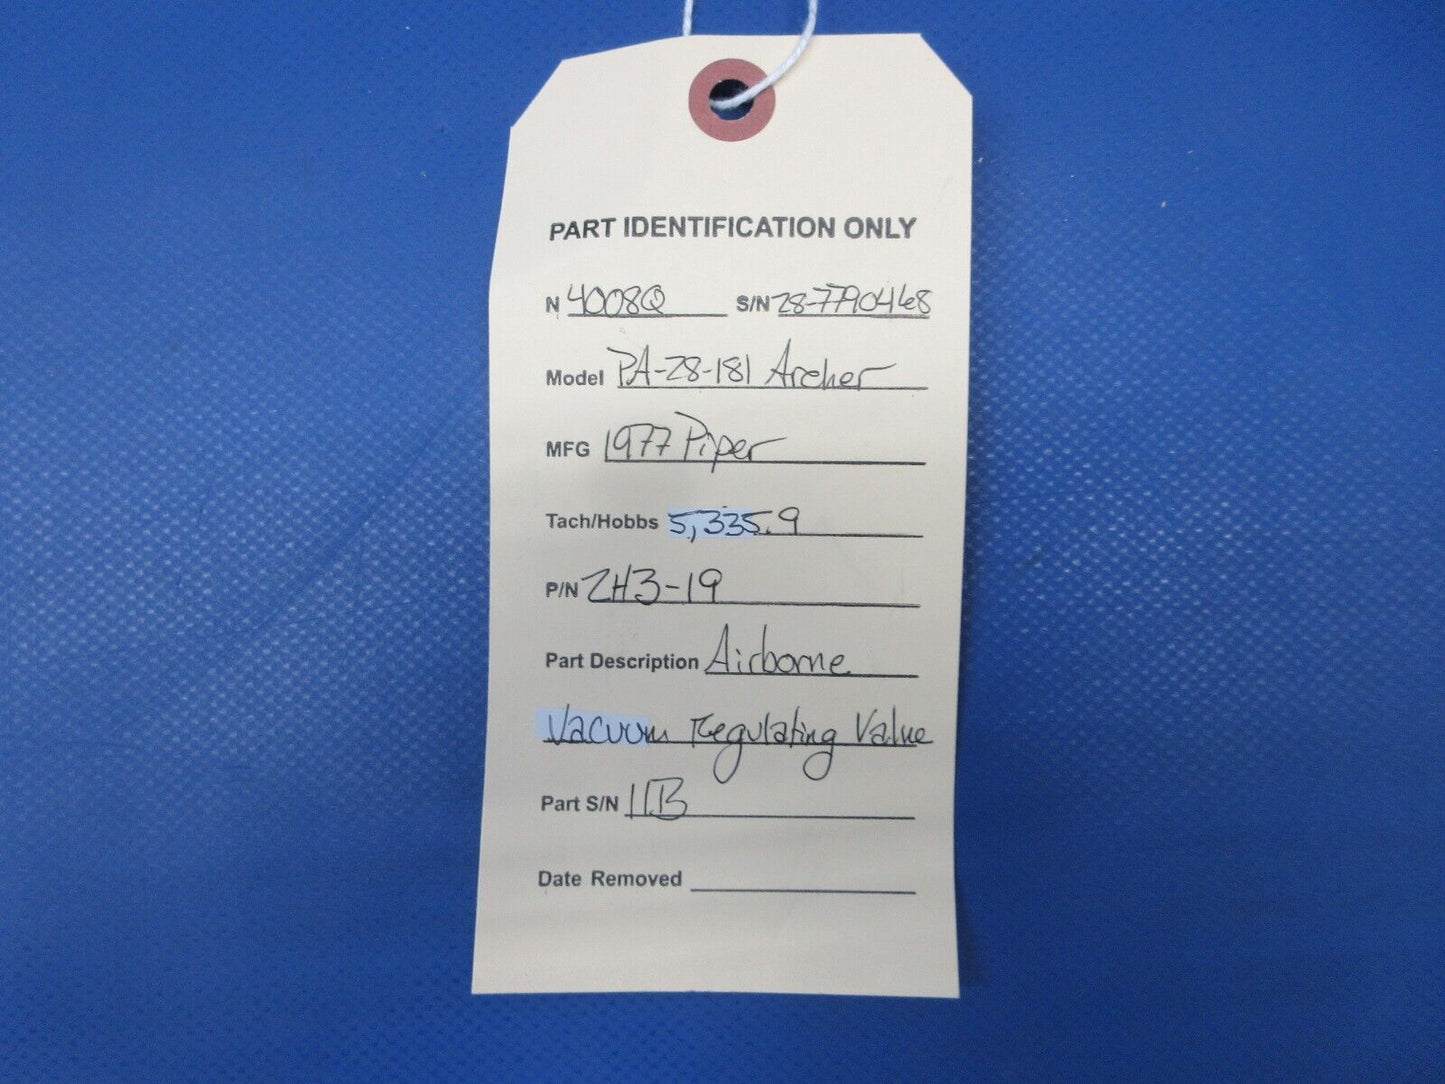 PART IDENTIFICATION ONLY
N 4008Q S/N 28-7790468
Model PA-28-181 Archer
MFG 1977 Piper
Tach/Hobbs 5,335.9
P/N 2H3-19
Part Description Airborne
Vacuum Regulating Valve
Part S/N 11B
Date Removed